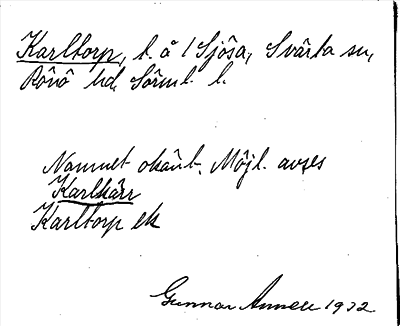 Karltorp, t. å 1 Sjösa, Svärta sn,
Rönö hd, Sörml. l.
Namnet okänt. Möjl. avses
Karlkärr
Karltorp ek
Gunnar Annell 1932